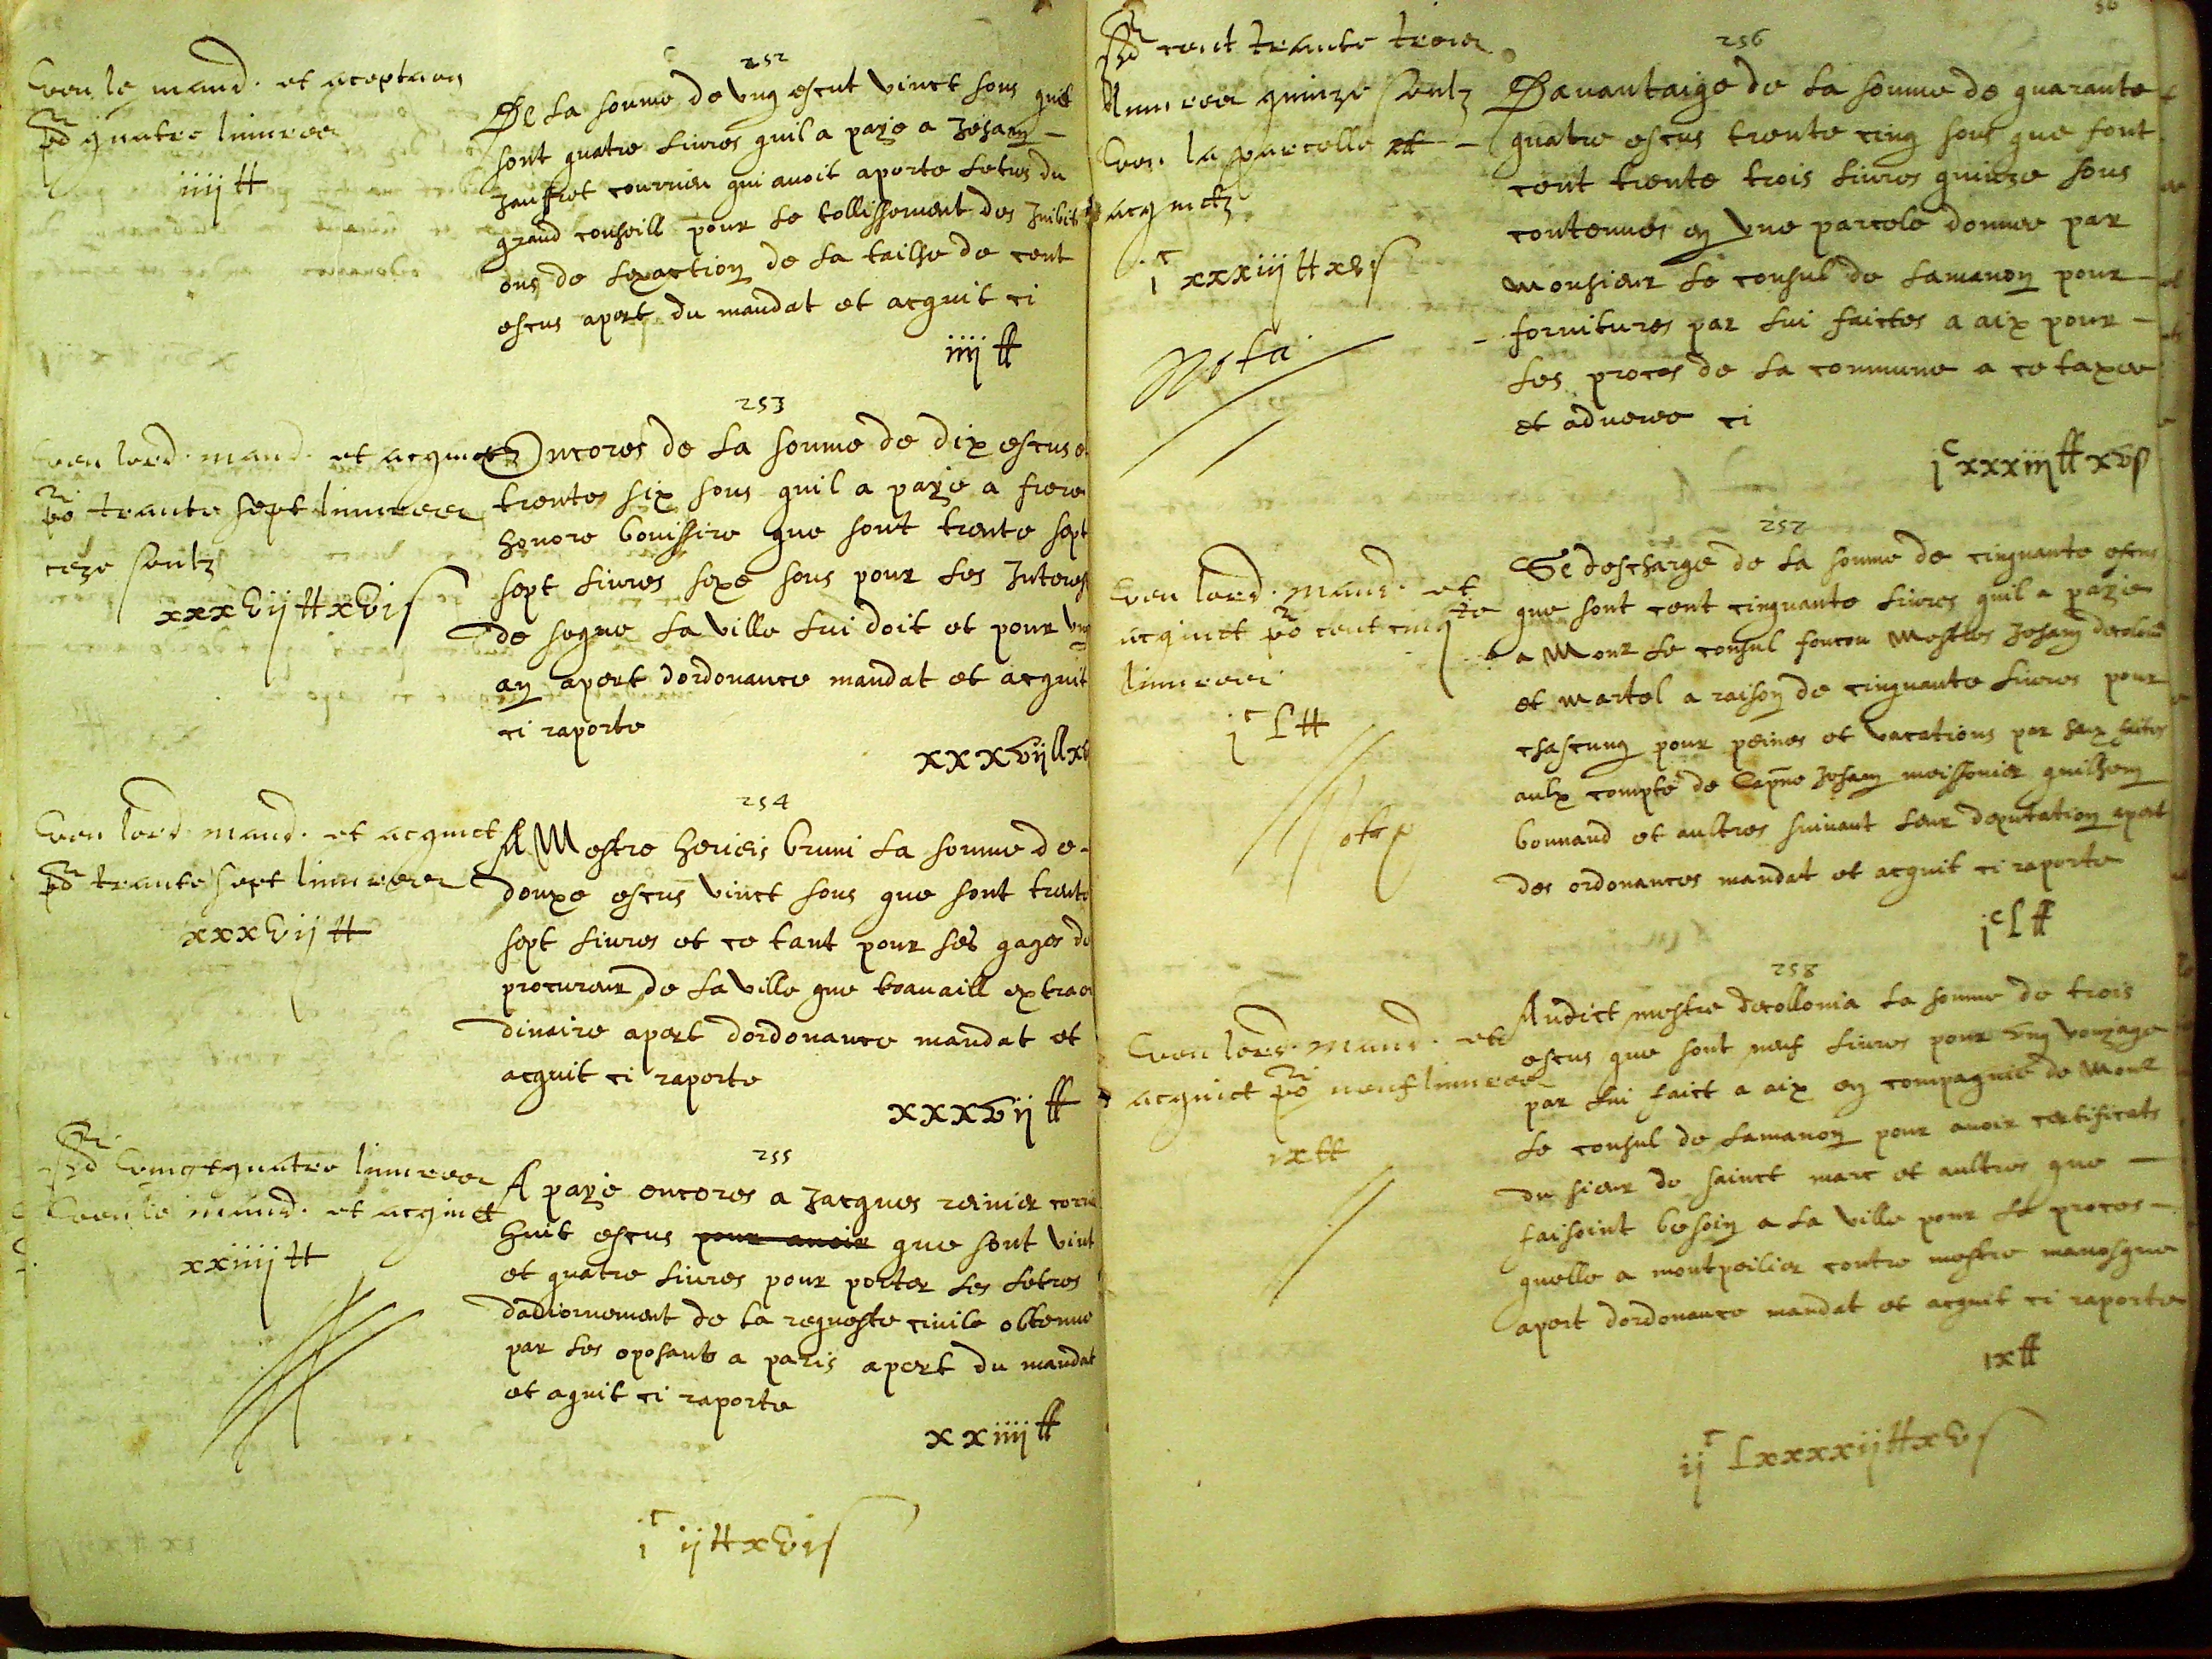 Veu le mand. et aceptaon
po.r quatre livrees
iiij ₶
252
De la somme de ung escut vinct sous que
sont quatre livres quil a paye a Jehan
Jauffret courrieu qui avoit aporte letres du
grand conseill pour le tollissement des Inibiti
ons de lexaction de la tailhe de cent
escus apert du mandat et acquit ci
iiij ₶
253
Veu lord. mand. et acquict
po.r trante sept livreees
seze soulz
xxxvij ₶ xvi s
Encores de la somme de dix escus et
trentes six sous quil a paye a frere
honore bouissire que sont trente sept
sept livres sexe sous pour les Interes
de segne la ville lui doit et pour ung
an apert dordonance mandat et acquit
ci raporte
xxxvij ₶ xv
254
Veu lord. mand. et acquict
po.r trante sept livreees
xxxvij ₶
A Mestre herieis bruni la somme de
douxe escus vinct sous que sont trente
sept livres et ce tant pour ses gages de
procureur de la ville que travaill extraor
dinaire apert dordonance mandat et
acquit ci raporte
xxxvij ₶
255
po.r vingtquatre livrees
Veu le mand. et acquict
xxiiij ₶
A paye encores a Jacques reinier corrie
huit escus pour avoir que sont vint
et quatre livres pour porter les letres
dadiornement de la requeste civile obtenue
par les oposants a paris apert du mandat
et aquit ci raporte
xxiiij ₶
j c ij ₶ xvi s
po.r cent trante trois
livrees quinze soulz
Veu la parcelle et
acquictz
j c xxxiij ₶ xv s
Nota
256
Davantaige de la somme de quarante
quatre escus trente cinq sous que font
cent trente trois livres quinze sous
contenues en une parcele donnee par
monsieur le consul de Lamanon pour
fornitures par lui faictes a aix pour
les proces de la commune a ce taxee
et adveree ci
j c xxxiij ₶ xv s
257
Veu lord. mand. et
acquict po.r cent cinq.te
livreees
j c L ₶
Se descharge de la somme de cinquante escus
que sont cent cinquante livres quil a paye
a Monr le consul foucou Mestres Jehan decolonia
et Martel a raison de cinquante livres pour
chascung pour peines et vacations par eux faites
aulx compte de Capne Jehan meissonier guilhem
bonnaud et aultres suivant leur deputation apert
des ordonances mandat et acquit ci raporte
j c L ₶
258
Veu lord. mand. et
acquict po.r neuf livrees
ix ₶
Audict mestre decollonia la somme de trois
escus que sont neuf livres pour ung voyage
par lui faict a aix en compagnie de Monr
le consul de Lamanon pour avoir certificats
du sieur de sainct marc et aultres que
faisoint besoin a la ville pour le proces
quelle a montpeilier contre mestre manosque
apert dordonance mandat et acquit ci raporte
ix ₶
ij c Lxxxxij ₶ xv s